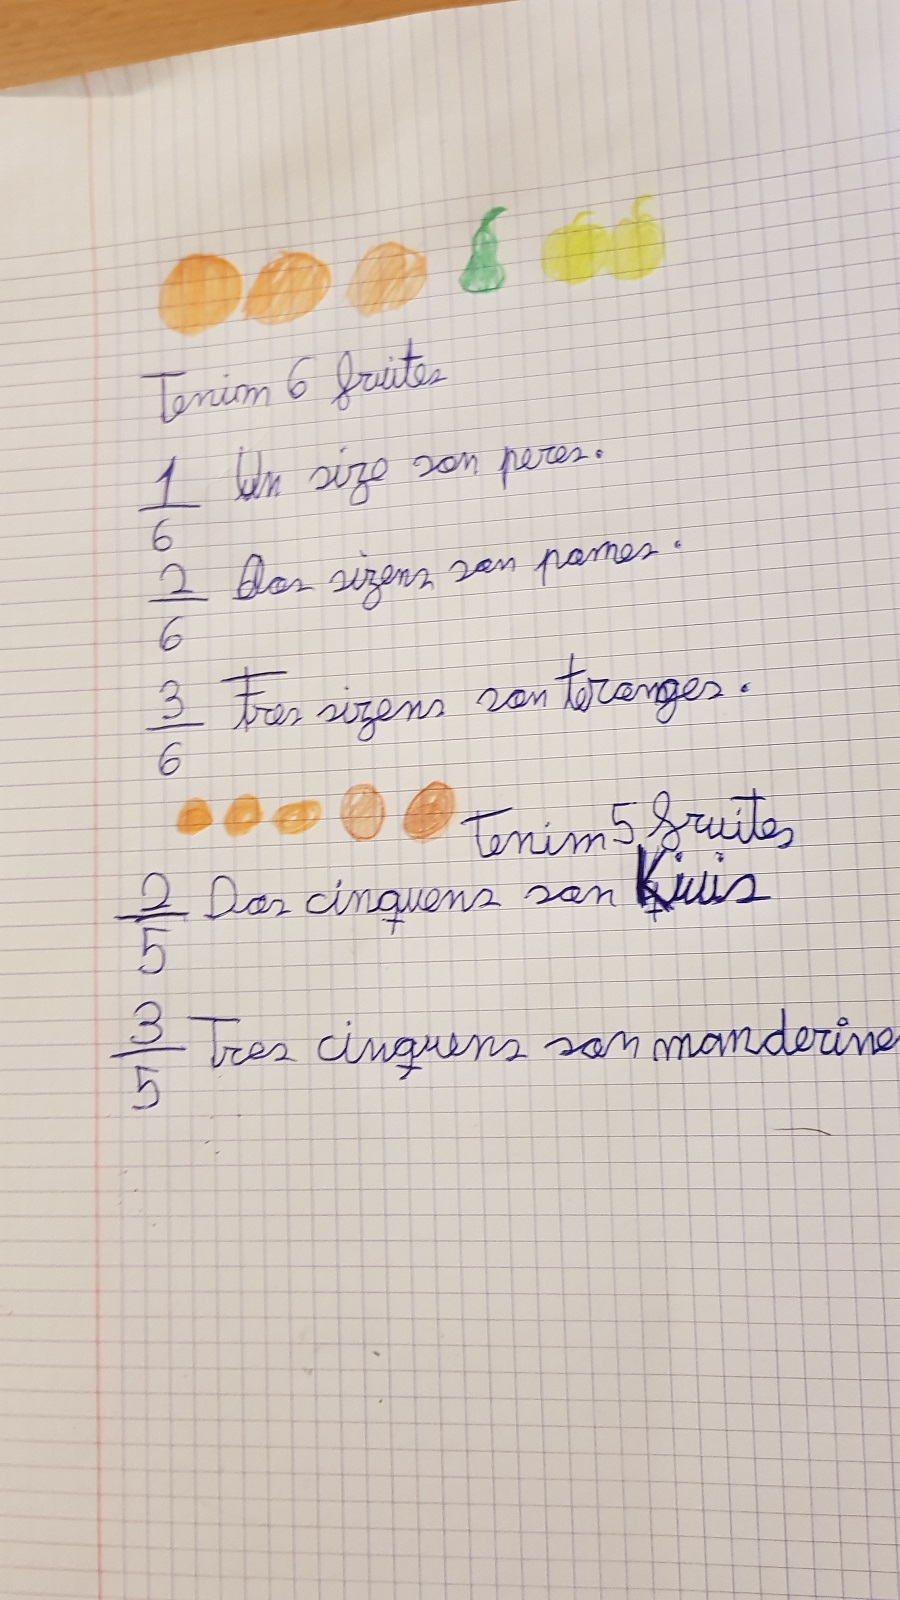 Tenim 6 fruites
1/6 Un size son peres.
2/6 Dos sizens son pomes.
3/6 Tres sizens son teronges.
Tenim 5 fruites
2/5 Dos cinquens son Kiuis
3/5 Tres cinquens son manderine